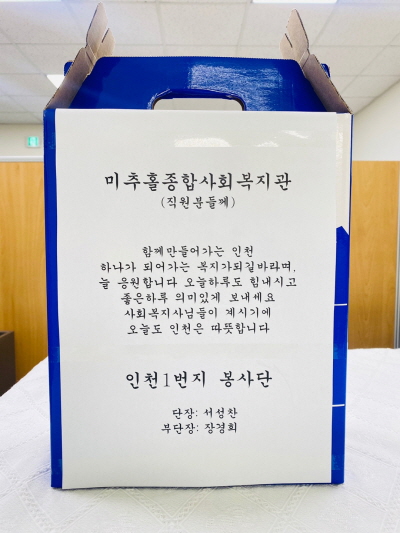 미추홀종합사회복지관
(직원분들께)
함께만들어가는 인천
하나가 되어가는 복지가되길바라며,
늘 응원합니다 오늘하루도 힘내시고
좋은하루 의미있게 보내세요
사회복지사님들이 계시기에
오늘도 인천은 따뜻합니다
인천1번지 봉사단
단장: 서성찬
부단장: 장경희